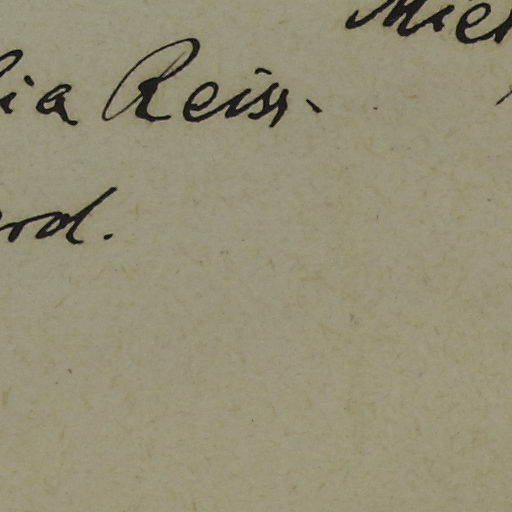 Mier
lia Reiss.
erd.